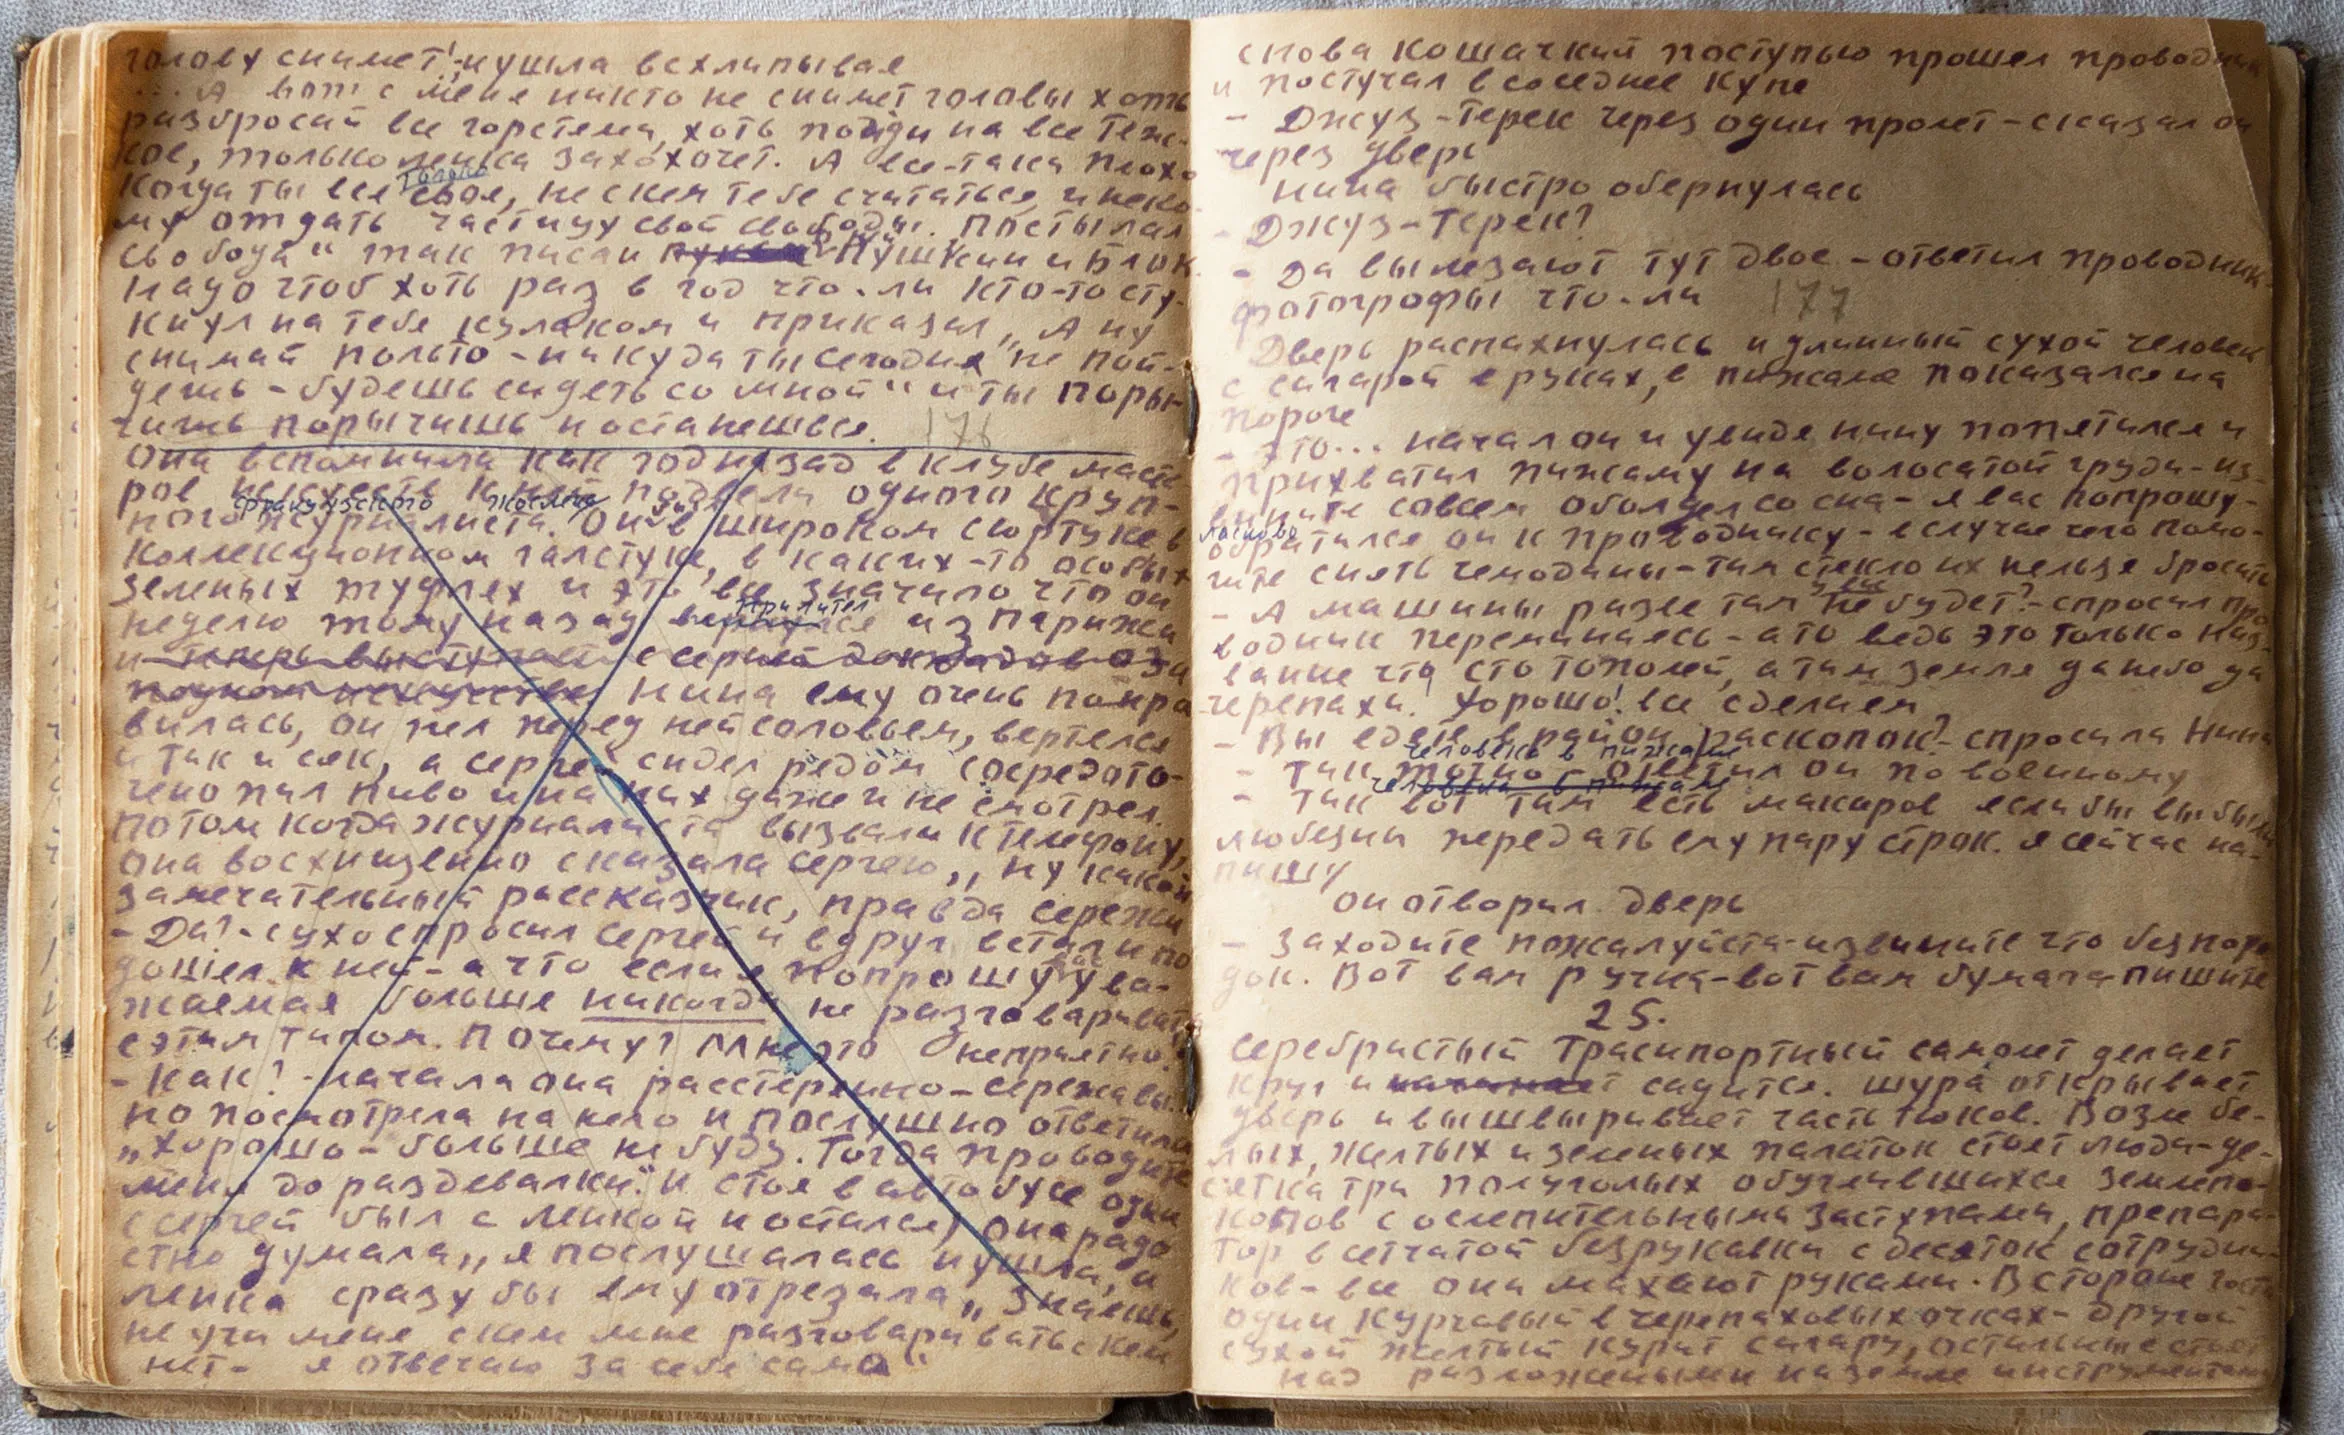 голову снимет!" и ушла всхлипывая
... А вот с меня никто не снимет головы хоть
разбросай все горстема, хоть пойди на все тяж-
кое, только ленка захохочет. А все-таки плохо
только
когда ты вся своя, не с кем тебе считаться и неко
му отдать частицу свой свободы. Постылая
свобода" так писали Пушкин и Блок
надо чтоб хоть раз в год что-ли кто-то сту-
кнул на тебя кулаком и приказал „А ну
снимай польто - никуда ты сегодня не пой-
дешь - будешь сидеть со мной" и ты поры-
чишь порычишь и останешься. 176
Она вспомнила как год назад в клубе масте
ров искусств к ней подвели одного круп-
французского
ного журналиста. Он в широком сюртуке в
коллекционном галстуке, в каких-то особых
зеленых туфлях и это все значило что он
прилетел
неделю тому назад вернулся из Парижа
и теперь выступает с серией докладов о за
падном искусстве Нина ему очень понра
вилась, он пел перед ней соловьем, вертелся
и так и сяк, а сергей сидел рядом сосредото-
чено пил пиво и на них даже и не смотрел.
Потом когда журналиста вызвали к телефону,
она восхищенно сказала сергею „ ну какой
замечательный рассказчик, правда сережа
- Да? - сухо спросил сергей и вдруг встал и по
дошел к ней - а что если я попрошу ува-
жаемая больше никогда не разговаривать
с этим типом. Почему? Мне это неприятно!
- Как? - начала она расстерянно - сережа вы..
но посмотрела на него и послушно ответила
„хорошо - больше не буду. Тогда проводите
меня до раздевалки." И стоя в автобусе одна
(сергей был с ленкой и остался) она радо
стно думала „ я послушалась и ушла, а
ленка сразу бы ему отрезала „ знаешь,
не учи меня с кем мне разговаривать с кем
нет - я отвечаю за себя сама"
снова кошачкий поступью прошел проводник
и постучал в соседнее купе
- Джуз-терек через один пролет - сказал он
через дверь
Нина быстро обернулась
- Джуз-Терек?
- Да вылезают тут двое - ответил проводник
фотографы что-ли 177
Дверь распахнулась и длинный сухой человек
с сигарой в руках, в пижаме показался на
пороге
- Это... начал он и увидя нину попятился и
прихватил пижаму на волосатой груди - из-
вините совсем оболдел со сна - я вас попрошу -
ласково
обратился он к проводнику - в случае чего помо-
гите снять чемоданы - там стекло их нельзя бросать
у вас
- А машины разве там не будет? - спросил про
водник переминаясь - а то ведь это только наз-
вание что сто тополей, а там земля да небо да
черепахи! Хорошо! все сделаем
- Вы едете в район раскопок? - спросила Нина
человека в пижаме
- Так точно - ответил он по военному
человека в пижаме
- Так вот там есть макаров если бы вы были
любезны передать ему пару строк. я сейчас на-
пишу
он отворил дверь
- Заходите пожалуйста - извините что безпоря
док. Вот вам ручка - вот вам бумага пишите
25.
Серебристый Траснпортный самолет делает
круг и начинает садится. Шура открывает
дверь и вышвыривает часть тюков. Возле бе-
лых, желтых и зеленых палаток стоят люди - де-
сятка три полуголых обуглившихся землеко-
копов с ослепительными заступами, препара-
тор в сетчатой безрукавки с десяток сотрудни-
ков - все они махают руками. В стороне гости
один курчавый в черепаховых очках - другой
сухой желтый курит сигару, остальные стоят
над разложеными на земле инструментами